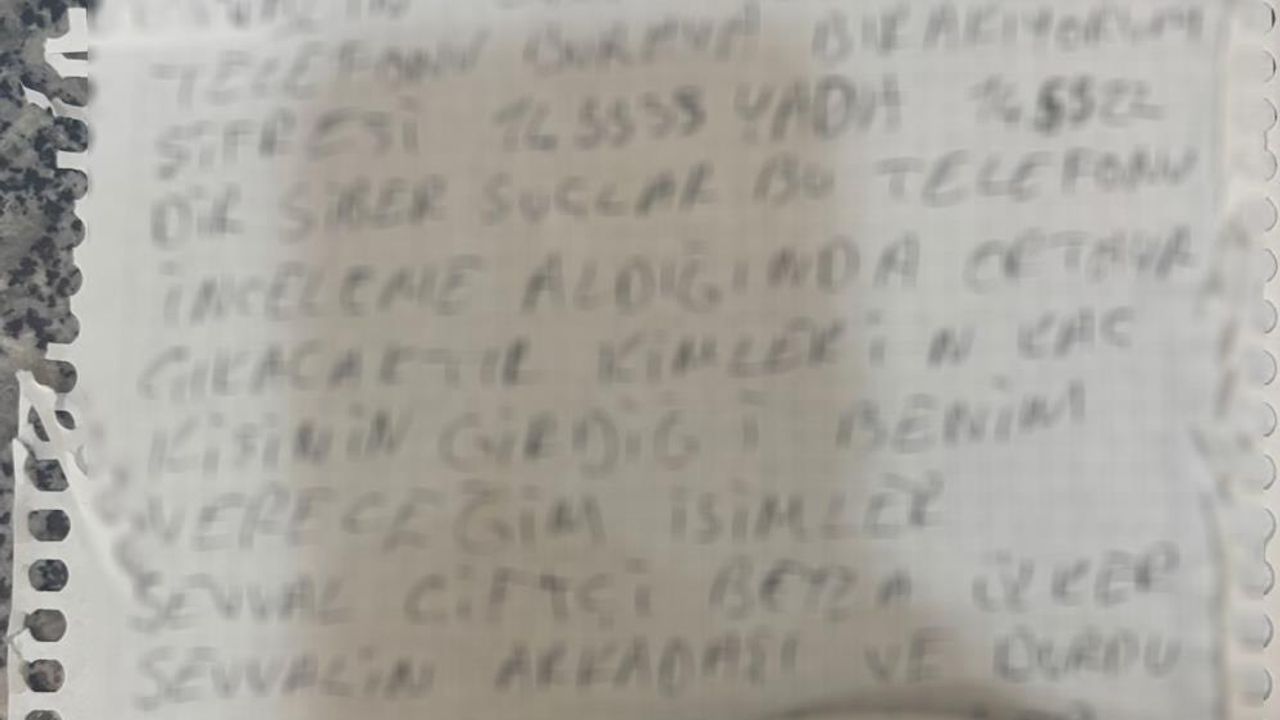 TELEFONU BURAYA BIRAKIYORUM
ŞİFRESİ 165555 YADA 165522
DİR SİBER SUÇLAR BU TELEFONU
İNCELEME ALDIĞINDA ORTAYA
ÇIKACAKTIR KİMLERİN KAÇ
KİŞİNİN GİRDİĞİ BENİM
VERECEĞİM İSİMLER
ŞEVVAL ÇİFTÇİ BEYZA İLKER
ŞEVVALİN ARKADAŞI VE DURDU